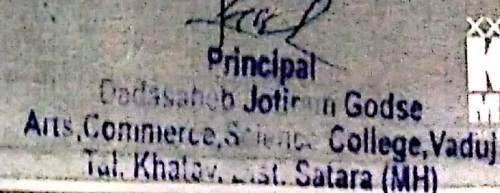 Principal
Dadasaheb Jotiram Godse
Arts,Commerce,Science College,Vaduj
Tal. Khatav, Dist. Satara (MH)
XX
K
M